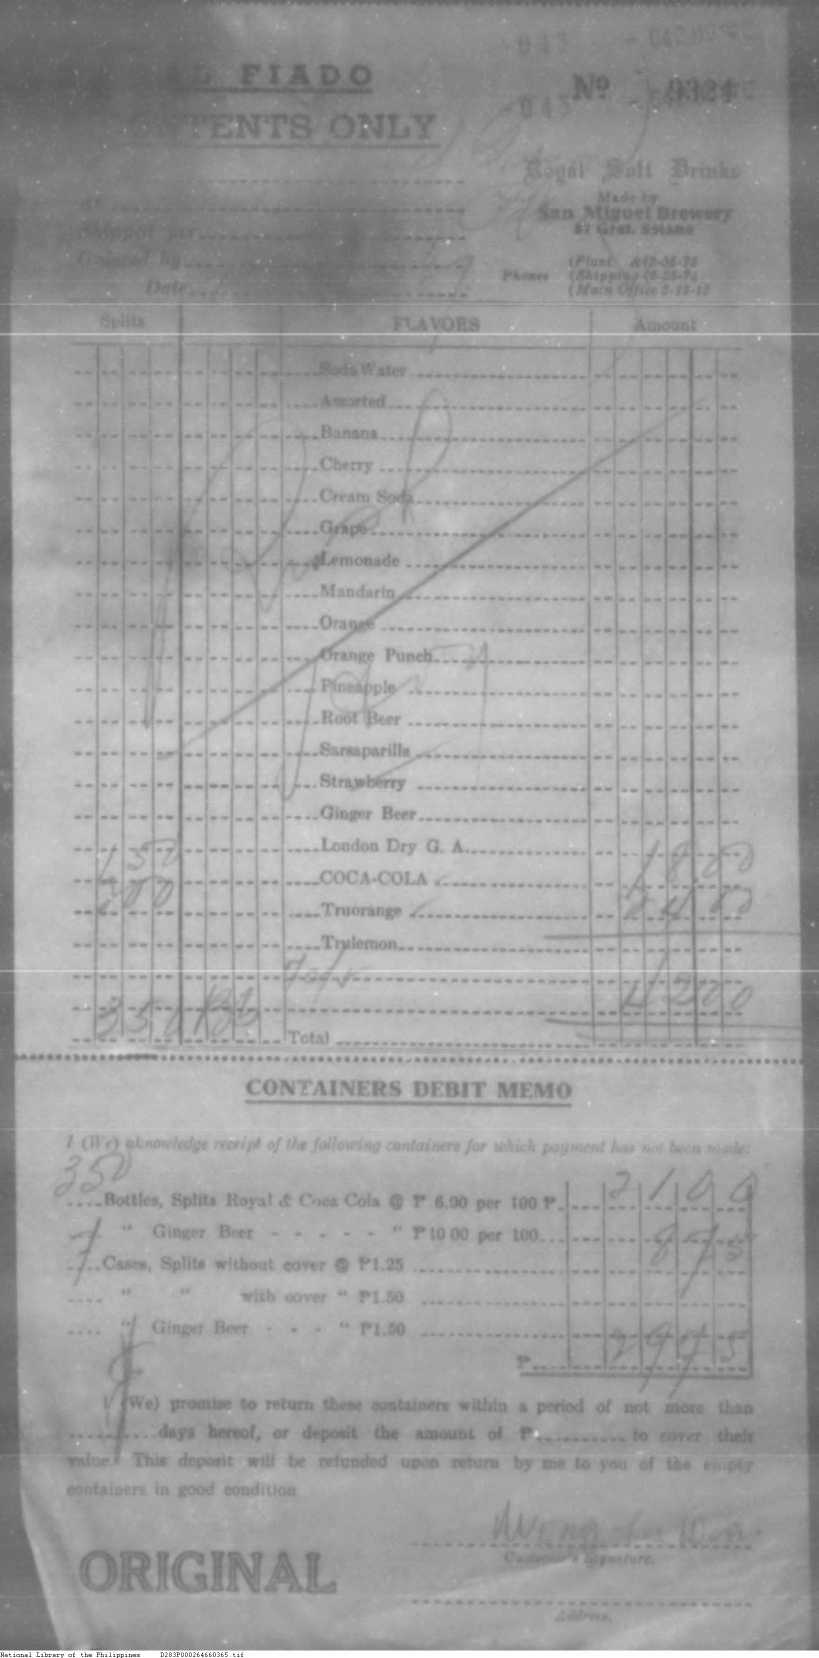 FIADO
Nº 9324
CONTENTS ONLY
Royal Soft Drinks
Made by
San Miguel Brewery
37 Gral. Solano
At
Shipped per
Ordered by
Date
Phones
(Plant
(Shipping
(Main Office 2-13-13
Splits FLAVORS Amount
Soda Water
Assorted
Banana
Cherry
Cream Soda
Grape
Lemonade
Mandarin
Orange
Orange Punch
Pineapple
Root Beer
Sarsaparilla
Strawberry
Ginger Beer
London Dry G. A.
150 COCA-COLA 18.00
200 Truorange 24 00
Trulemon
350 4200
Total
CONTAINERS DEBIT MEMO
I (We) aknowledge receipt of the following containers for which payment has not been made:
350 Bottles, Splits Royal & Coca Cola @ ₱ 6.00 per 100 ₱. 2100
" Ginger Beer - - - - - " ₱10 00 per 100
7 Cases, Splits without cover @ ₱1.25 875
" " with cover " ₱1.50
" Ginger Beer - - - " ₱1.50
₱ 2975
I (We) promise to return these containers within a period of not more than
days hereof, or deposit the amount of ₱ to cover their
value. This deposit will be refunded upon return by me to you of the empty
containers in good condition
Customer's Signature.
ORIGINAL
Address.
National Library of the Philippines D283P000264660365.tif